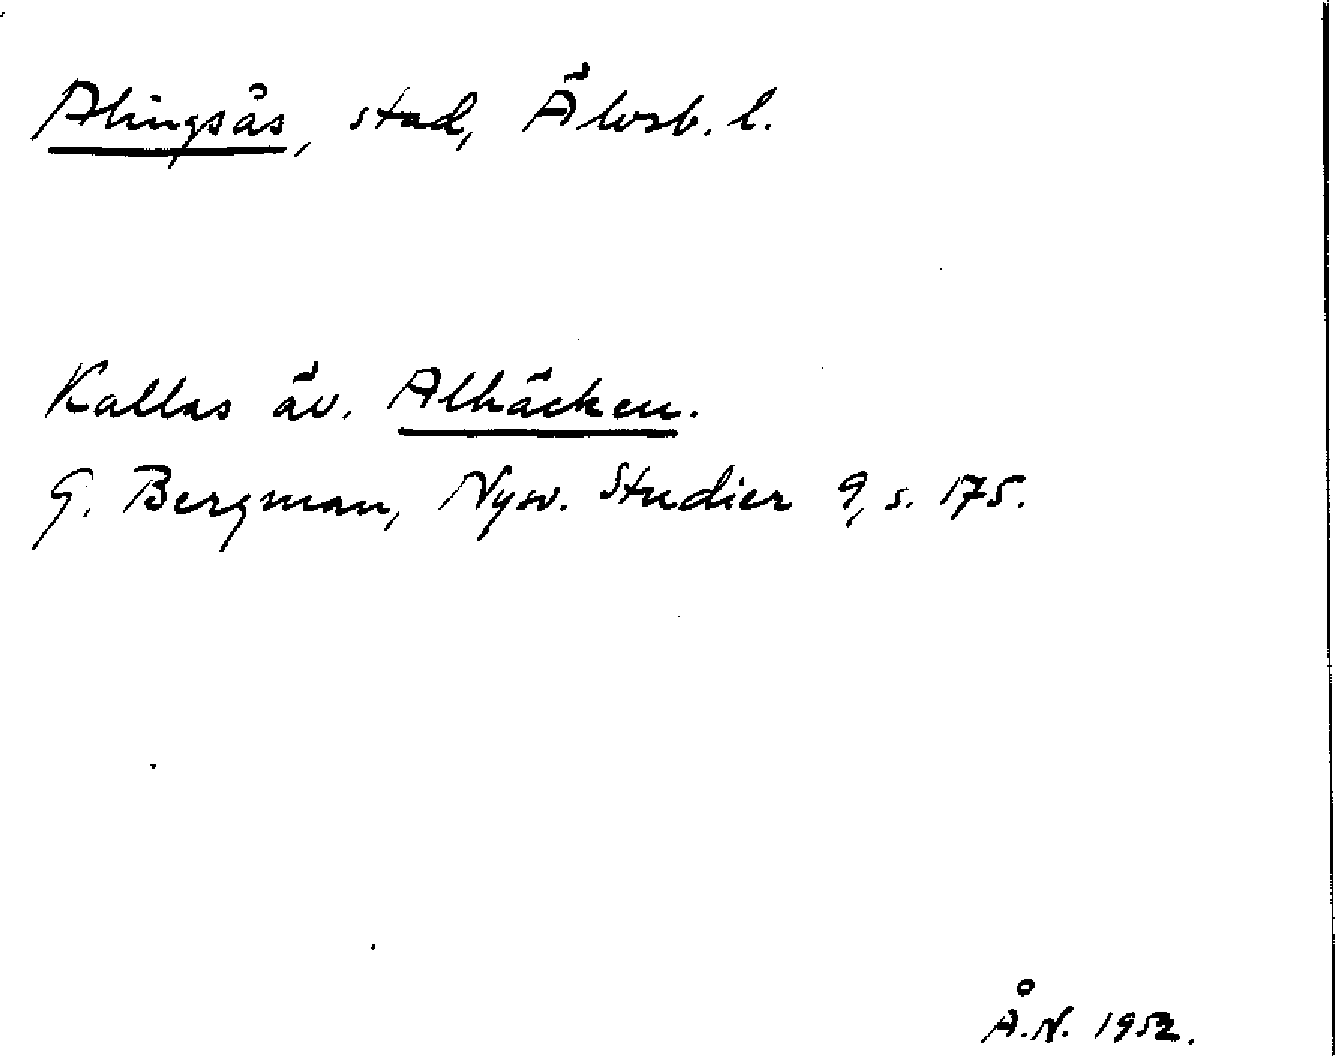 Alingsås, stad, Älvsb. l.
Kallas äv. Alhäcken.
G. Bergman, Nysv. Studier 9, s. 175.
Å.N. 1952.